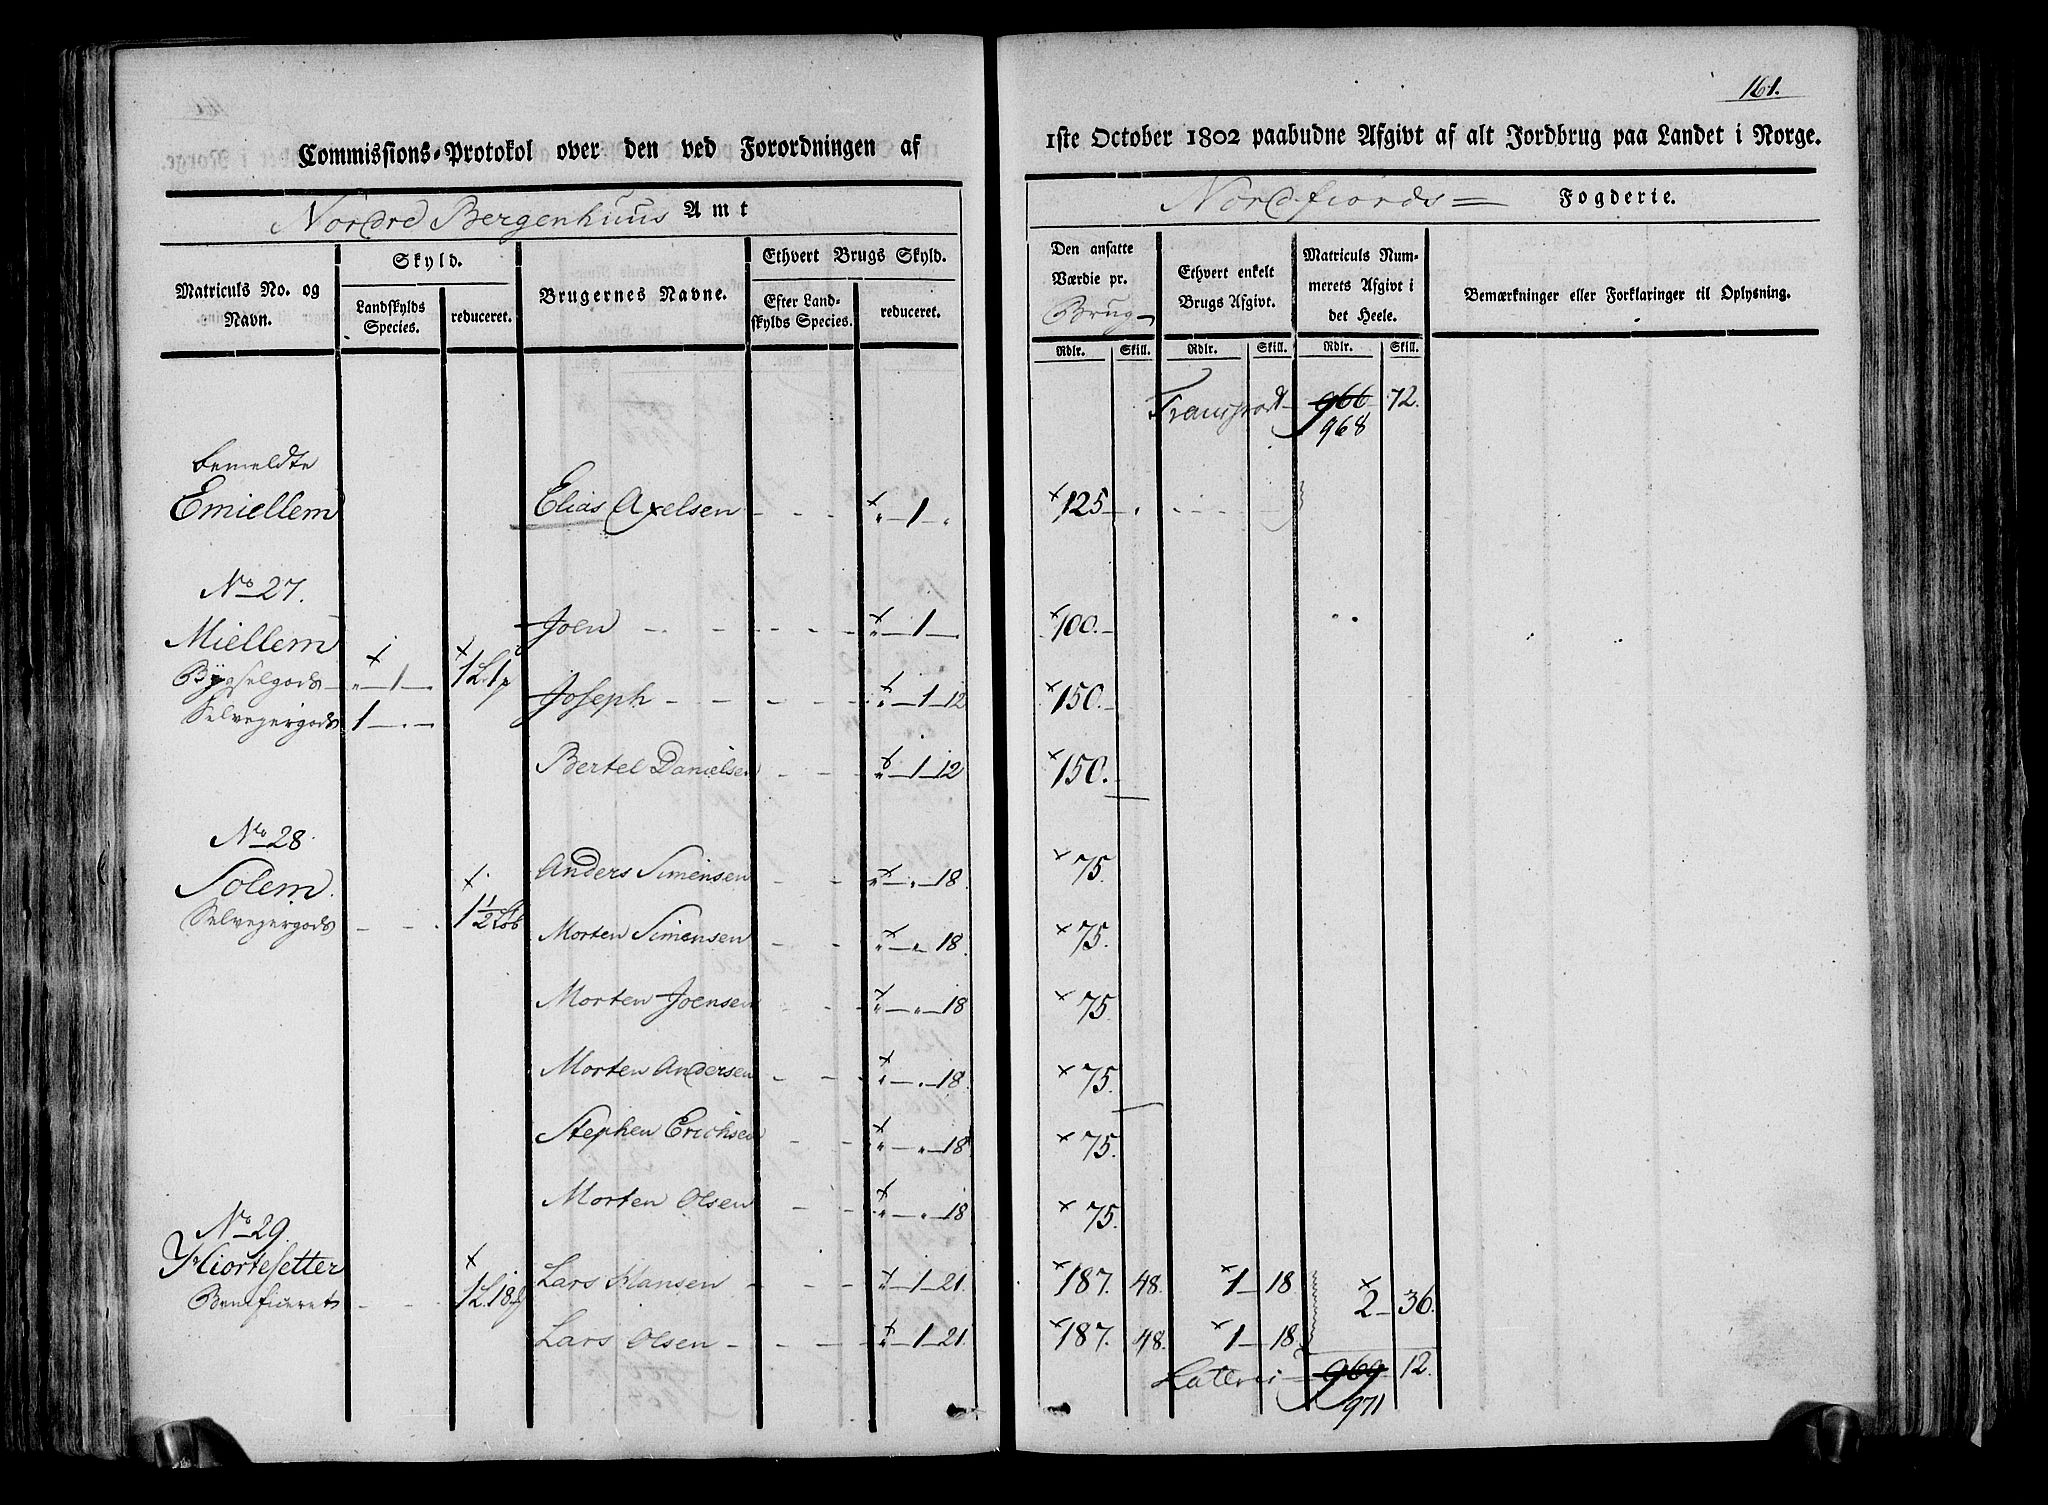 161.
Commissions-Protokol over den ved Forordningen af 1ste October 1802 paabudne Afgivt af alt Jordbrug paa Landet i Norge.
Nordre Bergenhuus Amt
Nordfiords Fogderie.
Matriculs No. og Navn.
Skyld.
Landskylds Species.
reduceret.
Brugernes Navne.
Ethvert Brugs Skyld.
Efter Landskylds Species.
reduceret.
Den ansatte Værdie pr. Brug
Ethvert enkelt Brugs Afgivt.
Matriculs Nummerets Afgivt i det Heele.
Bemærkninger eller Forklaringer til Oplysning.
Rdlr. Skill. Rdlr. Skill. Rdlr. Skill.
Transport 966 72.
968
bemeldte
Emiellem Elias Axelsen - - - " 1 " 125 "
No 27.
Miellem Joen - - - " 1 100.
Bygselgods " 1 1 L. 1 p
Selvejergods 1 Joseph - - - " 1 12 150.
Bertel Danielsen - - " 1 12 150.
No 28.
Solem. Anders Simensen - - " " 18. 75.
Selvejergods - - 1 1/2 Lob
Morten Simensen - - " " 18. 75.
Morten Joensen - - " " 18 75.
Morten Andersen - - " " 18. 75.
Stephen Erichsen - - " " 18. 75.
Morten Olsen - - " " 18 75.
No 29.
Hiortesetter Lars Hansen - - " 1 21. 187. 48. 1 18 2 36.
Beneficeret - - 1 L. 18
Lars Olsen - - " 1 21. 187. 48. 1 18.
Lateris 969 12.
971